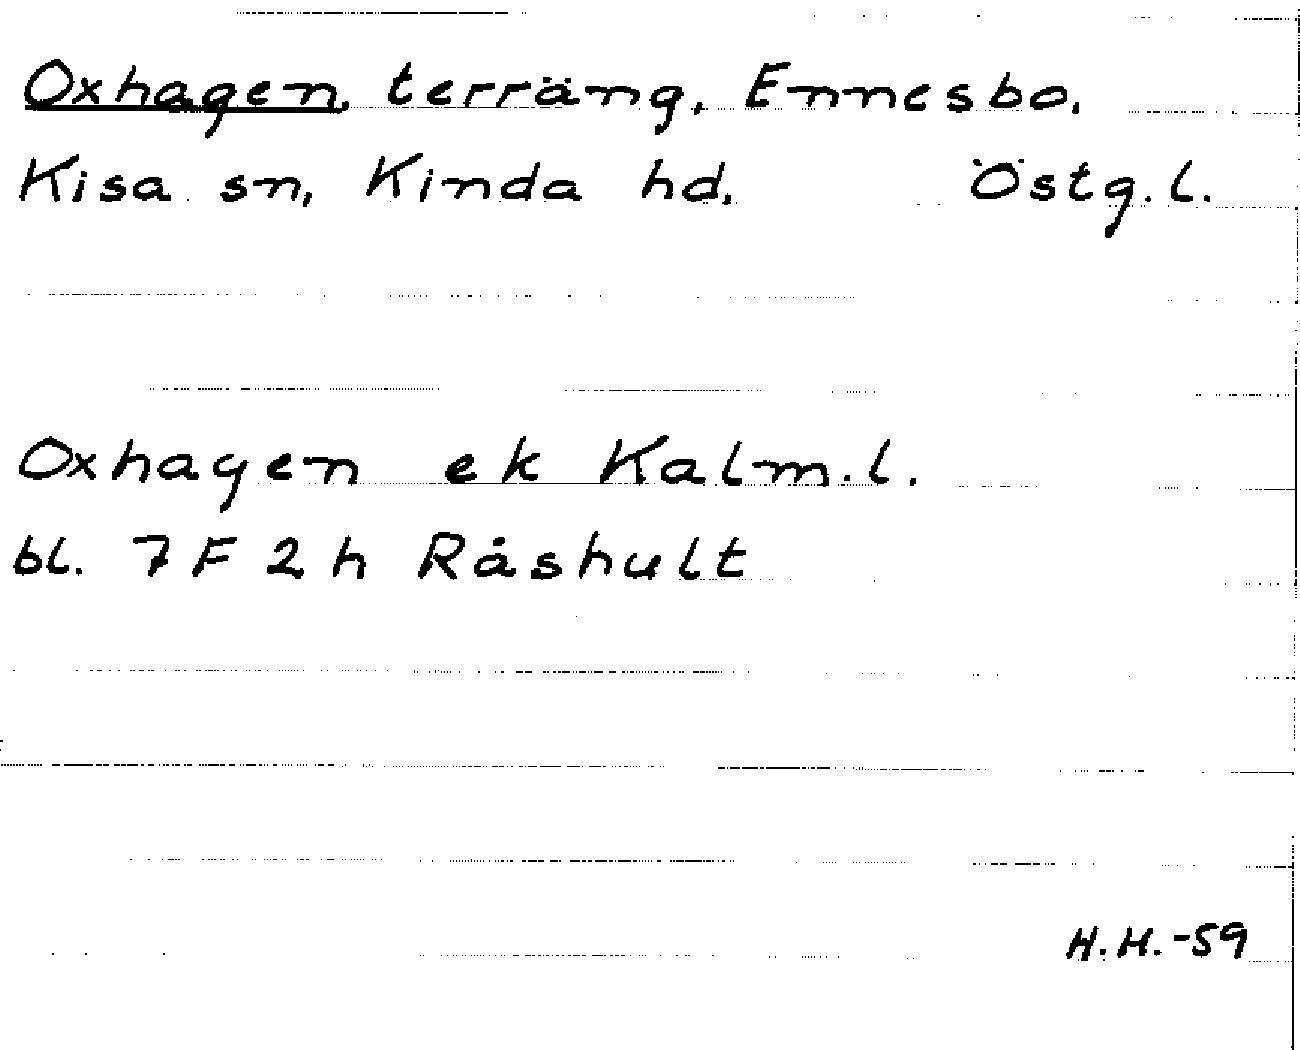 Oxhagen, terräng, Ennesbo,
Kisa sn, Kinda hd, Östg.l.
Oxhagen ek Kalm.l.
bl. 7F 2h Råshult
H.H.-59